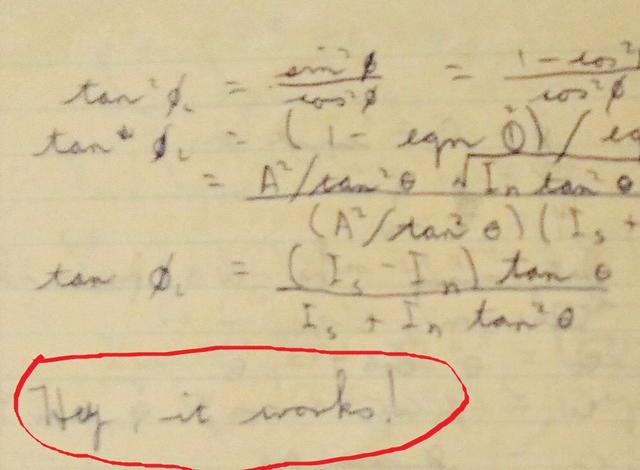 tan² ϕ₁ = sin² ϕ / cos² ϕ = 1 - cos² / cos² ϕ
tan² ϕ₁ = (1 - eqn ①) / eq
= A²/tan² θ √ Iₙ tan² θ / (A²/tan² θ)(Iₛ +
tan ϕ₁ = (Iₛ - Iₙ) tan θ / Iₛ + Iₙ tan² θ
Hey, it works!